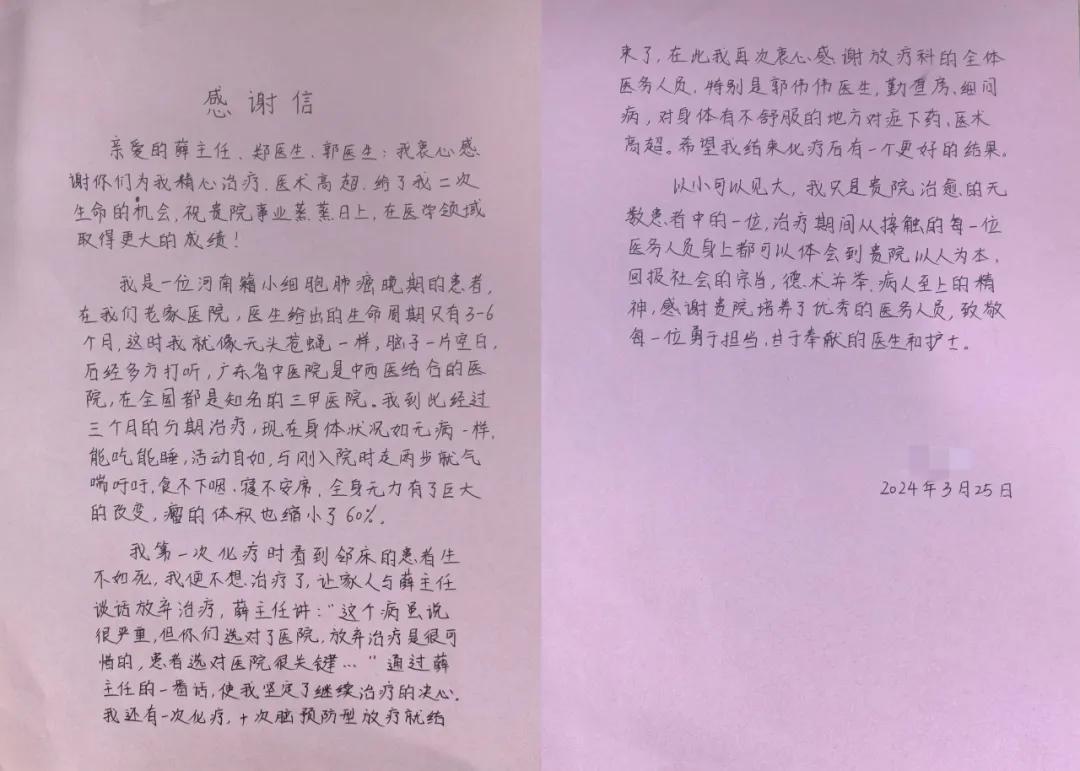 感谢信
亲爱的薛主任、郑医生、郭医生：我衷心感
谢你们为我精心治疗、医术高超、给了我二次
生命的机会，祝贵院事业蒸蒸日上，在医学领域
取得更大的成绩！
我是一位河南籍小细胞肺癌晚期的患者，
在我们老家医院，医生给出的生命周期只有3-6
个月，这时我就像无头苍蝇一样，脑子一片空白，
后经多方打听，广东省中医院是中西医结合的医
院，在全国都是知名的三甲医院。我到此经过
三个月的分期治疗，现在身体状况如无病一样，
能吃能睡，活动自如，与刚入院时走两步就气
喘吁吁，食不下咽、寝不安席，全身无力有了巨大
的改变，瘤的体积也缩小了60%。
我第一次化疗时看到邻床的患者生
不如死，我便不想治疗了，让家人与薛主任
谈话放弃治疗，薛主任讲：“这个病虽说
很严重，但你们选对了医院，放弃治疗是很可
惜的，患者选对医院很关键…”通过薛
主任的一番话，使我坚定了继续治疗的决心。
我还有一次化疗，十次脑预防型放疗就结
束了，在此我再次衷心感谢放疗科的全体
医务人员，特别是郭伟伟医生，勤查房、细问
病，对身体有不舒服的地方对症下药、医术
高超。希望我结束化疗后有一个更好的结果。
以小可以见大，我只是贵院治愈的无
数患者中的一位，治疗期间从接触的每一位
医务人员身上都可以体会到贵院以人为本，
回报社会的宗旨，德、术并举、病人至上的精
神，感谢贵院培养了优秀的医务人员，致敬
每一位勇于担当，甘于奉献的医生和护士。
2024年3月25日